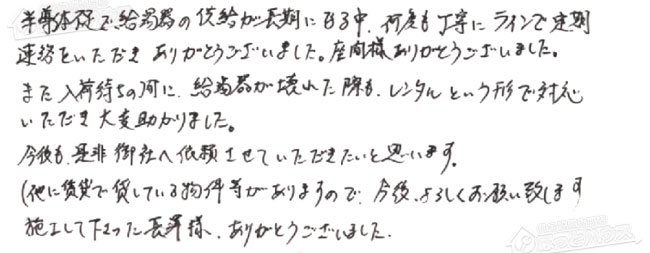 半導体不足で給湯器の供給が長期になる中、何度も丁寧にラインで定期
連絡をいただき ありがとうございました。座間様ありがとうございました。
また入荷待ちの間に、給湯器が壊れた際も、レンタルという形で対応
いただき大変助かりました。
今後も、是非御社へ依頼させていただきたいと思います。
(他に賃貸で貸している物件等がありますので、今後、よろしくお願い致します
施工して下さった長澤様、ありがとうございました。